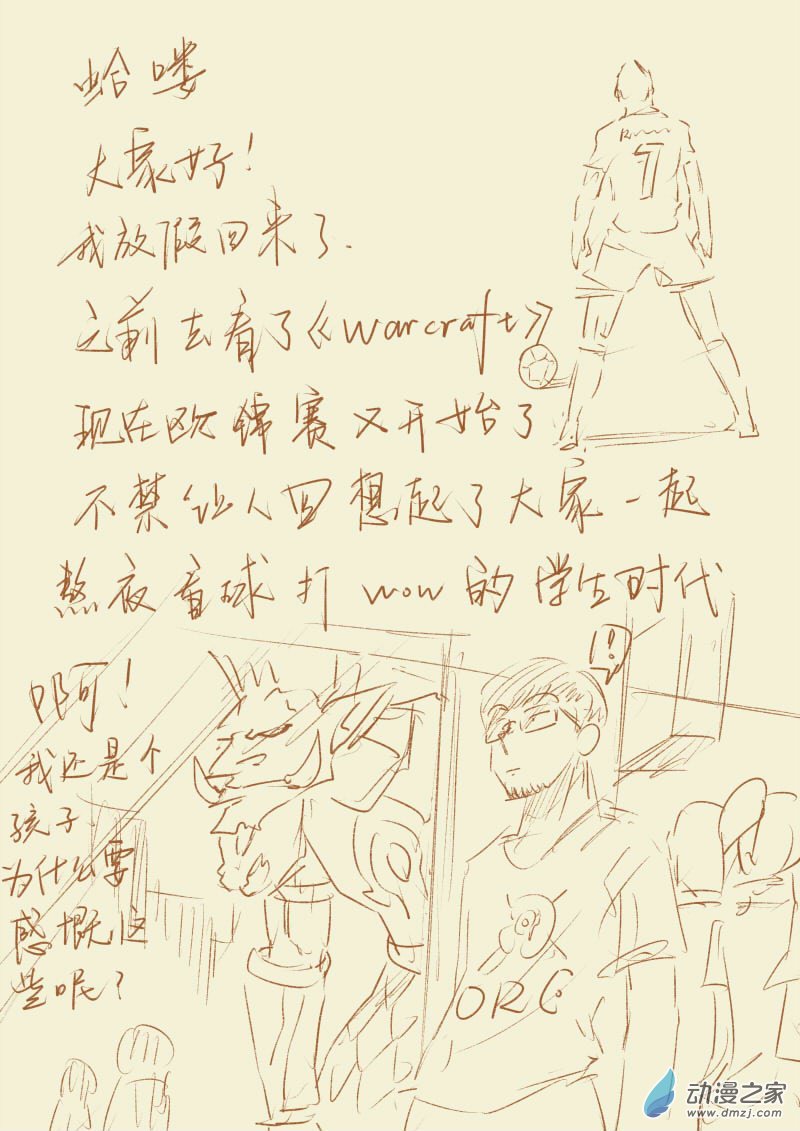 哈喽
大家好！
我放假回来了.
之前去看了《warcraft》
现在欧锦赛又开始了
不禁让人回想起了大家一起
熬夜看球打wow的学生时代
啊！
我还是个
孩子.
为什么要
感慨这
些呢？
7
!
ORC
动漫之家
www.dmzj.com